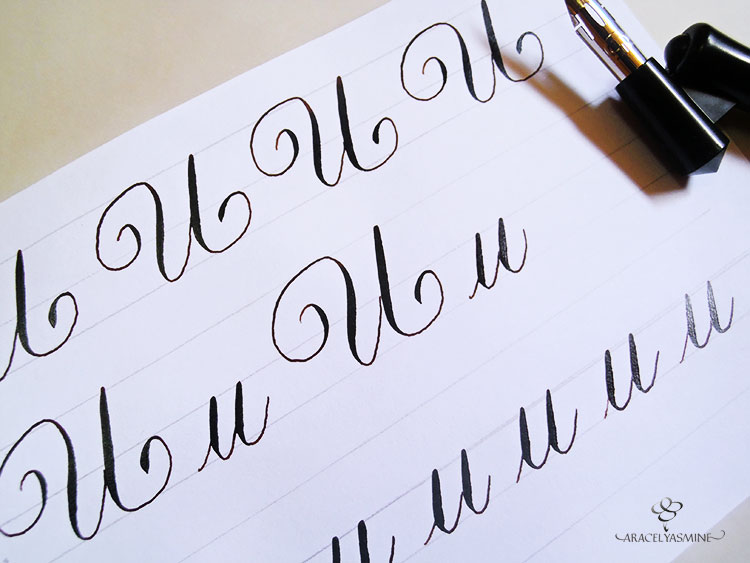 U U U U
U u U u
u u u u u
ARACELYASMINE